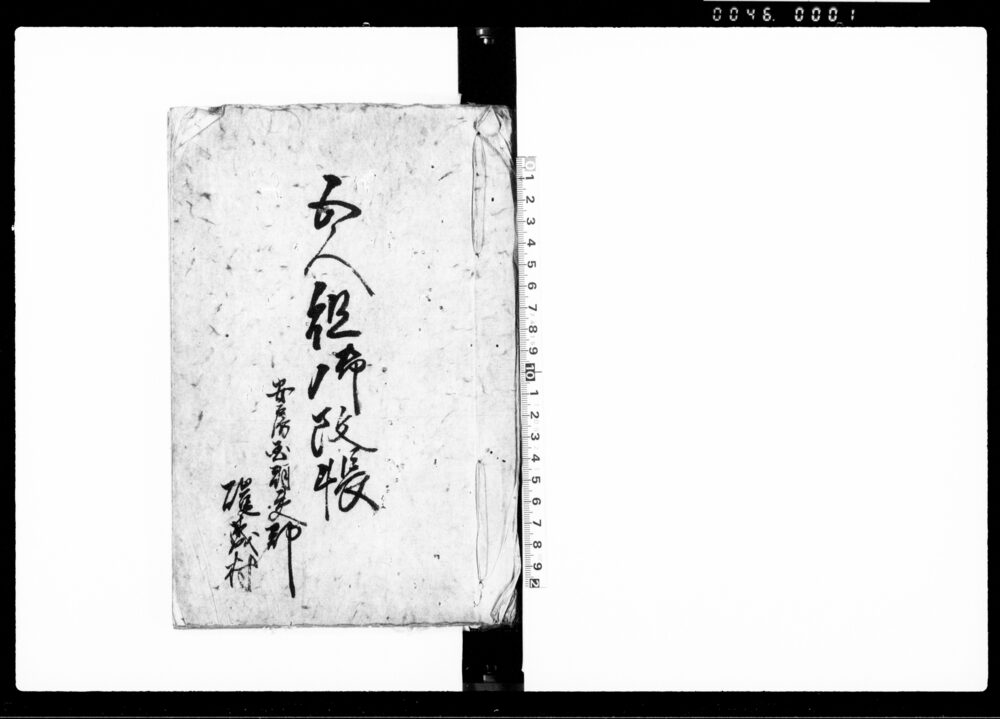 0046. 0001
五人組御改帳
安房国朝夷郡
礒蔵村
0 1 2 3 4 5 6 7 8 9 10 1 2 3 4 5 6 7 8 9 2